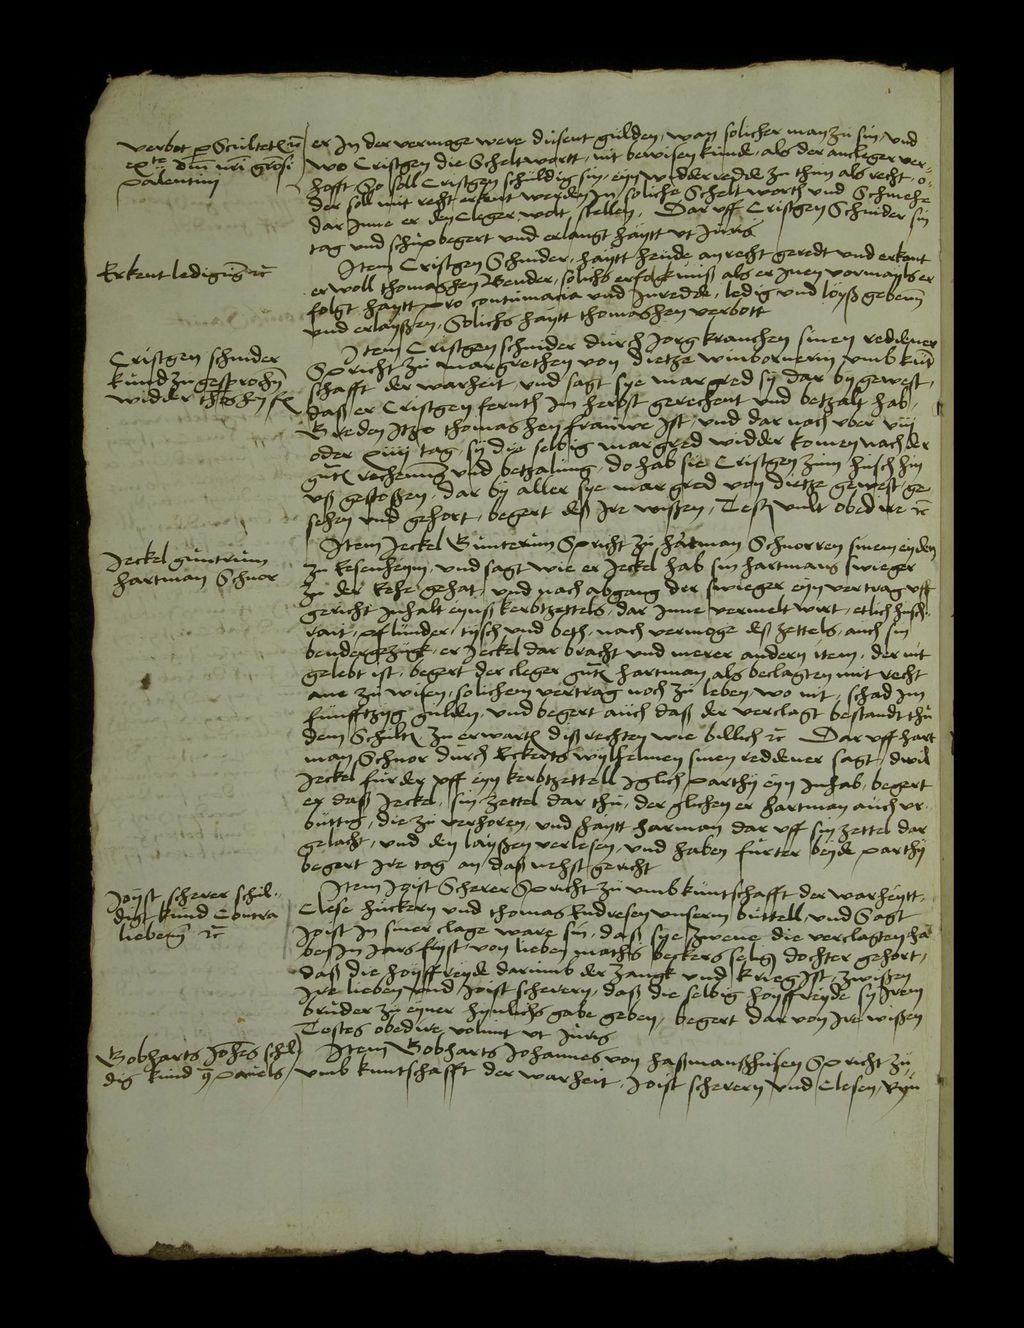 verbot p Scultetum
ex parte domini nostri graciosi
palentini
er In der vermoge were dusent gulden, wan solicher man zu sin, und
wo Cristgen die Scheltwortt, nit bewisen kunde, als der ancleger ver-
hofft, So soll Cristgen schuldig sin, eyn widderredde zu thun als recht, o-
der soll mit recht erkant werden In soliche Schelt wortt und Schmehe
dar Inne er den Cleger wolt stellen, Dar uff Cristgen Schnider sin
tag und schup begert und erlangt haytt ut Juris
Erkent ledigung etc
Item Cristgen Schnider, haytt heude an recht geredt und erkent
er woll thomashen Bender, solichs erfolgkniss als er Inen vormayls er
folgt haytt pro contumacia und Inredde, ledig und loyß gebenn
und erlayßen, Solichs haytt thomashen verbott
Cristgen schnider
kund zugesprochen
widder thoßhen
Item Cristgen schnider durch Jorg kranchen sinen reddener
Spricht zu margrethen von dietze umb kunt
schafft der warheit, und sagt sye margred sy dar by gewest,
daß er Cristgen fernth Im herbst gerechent und betzalt hab,
B reden Itzo thomashen frauwe Ist, und dar nach uber viij
oder xiiij tag, sy die selbig margred widder komen nach der
guten rechenung und betzalung, do hab sie Cristgen zum husch hin
uß gestoßen, dar by aller sye margred von dietze gewest, ge
sehen und gehort, begert deß Ire wißen, Testis vult obedire etc
Jeckel guntrum
hartman Schnor
Item Jeckel Bunterum Spricht zu hartman Schnorren sinem eyden
zu Esenheym, und sagt wie er Jeckel hab sin hartmans swieger
zu der Ehe gehat, und nach abgang der swieger eyn vertrag uff
gericht Inhalt eynß kerbtzettels, dar Inne vermelt wirt, etlich husch-
rait, pflunder, tysch und beth, nach vermoge deß zettels, auch sin
bendergezugk, er Jeckel dar bracht und merer andern item, der nit
gelebt ist, begert der cleger gutter hartman als beclagten mit recht
ane zu wisen, solichem vertrag noch zu leben, wo nit, schad Im
funfftzyg gulden, und begert auch daß der verclagt bestandt thu
dem Schulteß zu erwarten diß rechten wie billich etc Dar uff hart
man Schnor durch Eckerts wylhelmen sinen reddener sagt, dwil
Jeckel fur der uff eyn kerbtzettell Iglich parthy eyn Inhab, begert
er daß Jeckel, sin zettel dar thu, der glichen er hartman auch ur-
buttig, die zu verhoren, und haytt harman dar uff sin zettel dar
gelacht, und den layßen verlesen, und haben furter beyde parthy
begert Ire tag an daß nehst gericht
Joyst scherer schul-
digt kund Contra
liebenn etc
Item Joist Scherer Spricht zu umb kuntschafft der warheytt,
Clese huckern und thomas Endresen unserm buttell, und Sagt
Joist In siner clage ware sin, daß sye zwene die verclagten ha
ben In Jars fryst, von lieben mathis beckers selig dochter gehort,
daß die hoyffreyde darumb der zangk und krieg Ist, zwißen
Ire lieben und Joist scherern, daß die selbig hoyffreyde sy Irem
bruder zu eyner hynlichs gabe geben, begert dar von Ire wißen
Testes obedire volunt ut Juris
Bobharts Johannes schul
dig kund
Item Bobharts Johannes von haßmanßhusen Spricht zu
umb kuntschafft der warheit, Joist scherern und Clesen,